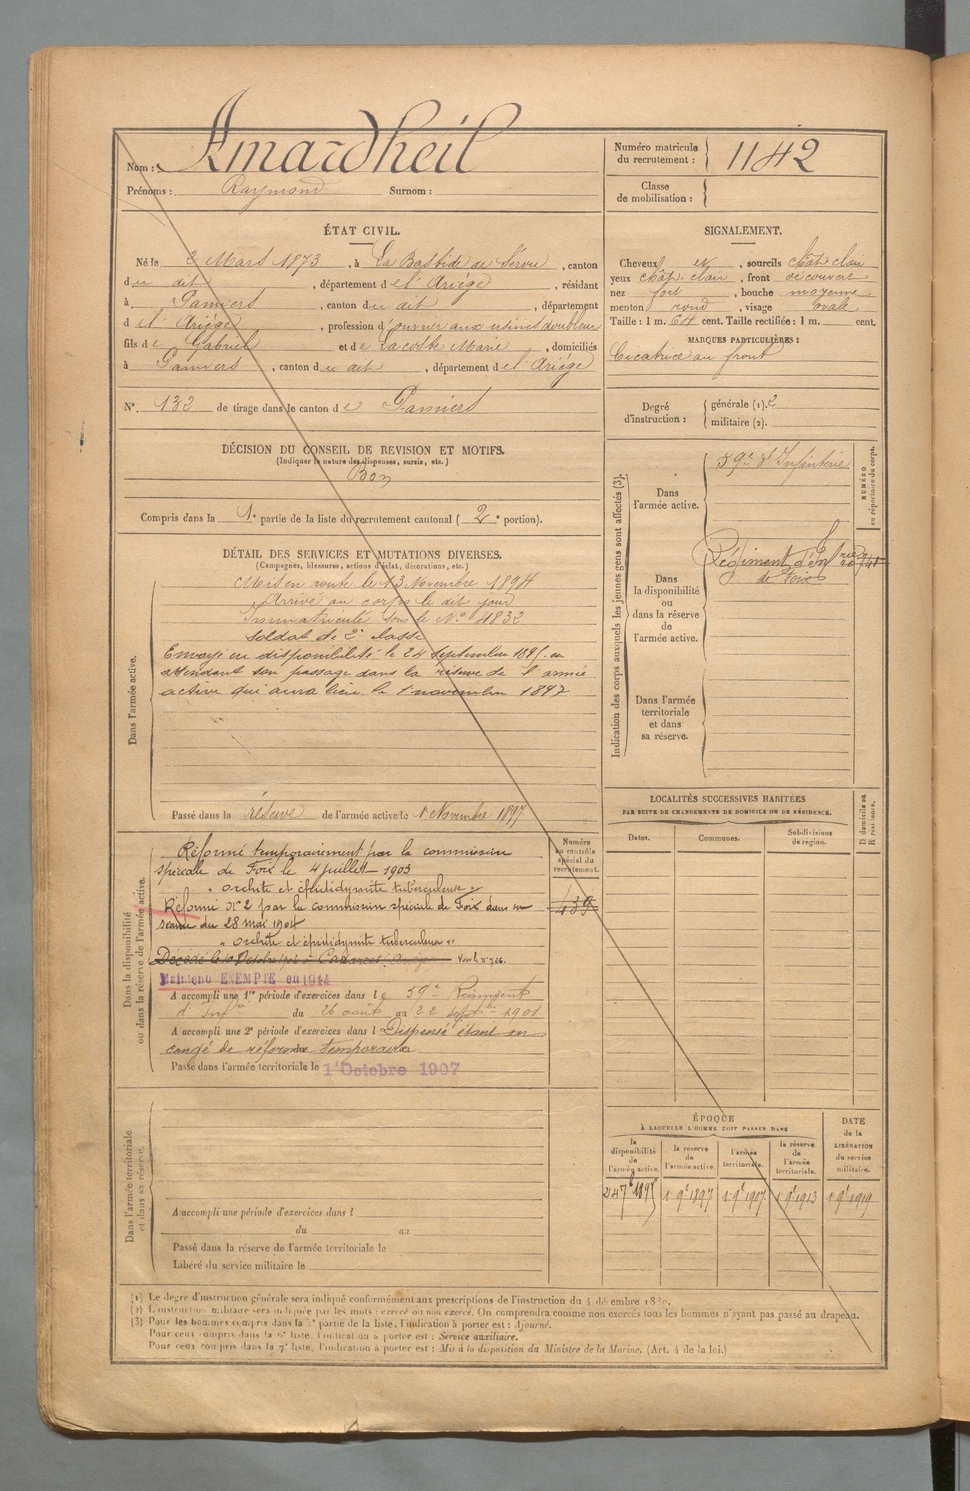 Nom : Amardheil
Prénoms : Raymond Surnom :
Numéro matricule du recrutement : 1142
Classe de mobilisation :
ÉTAT CIVIL.
Né le 2 Mars 1873, à La Bastide de Sérou, canton
du dit, département de l'Ariège, résidant
à Pamiers, canton du dit, département
d el' Ariège, profession d'ouvrier aux usines doubleur
fils de Gabriel et de Lacoste Marie, domiciliés
à Pamiers, canton du dit, département de l'Ariège
N° 132 de tirage dans le canton de Pamiers
SIGNALEMENT.
Cheveux et, sourcils chât: clair
yeux chât: clair, front découvert
nez fort, bouche moyenne
menton rond, visage ovale
Taille : 1 m. 64 cent. Taille rectifiée : 1 m. cent.
MARQUES PARTICULIÈRES :
Cicatrice au front
Degré d'instruction : générale (1). 2
militaire (2).
DÉCISION DU CONSEIL DE REVISION ET MOTIFS.
(Indiquer la nature des dispenses, sursis, etc.)
Bon
Compris dans la 1e partie de la liste du recrutement cantonal ( 2e portion).
DÉTAIL DES SERVICES ET MUTATIONS DIVERSES.
(Campagnes, blessures, actions d'éclat, décorations, etc.)
Dans l'armée active.
Mis en route le 13 Novembre 1894
Arrivé au corps le dit jour
Immatriculé sous le N° 4832
soldat de 2e classe
Envoyé en disponibilité le 24 septembre 1895 en
attendant son passage dans la réserve de l'armée
active qui aura lieu le 1 novembre 1897
Passé dans la réserve de l'armée active le 1 Novembre 1897
Indication des corps auxquels les jeunes gens sont affectés (3).
NUMÉRO au répertoire du corps.
Dans l'armée active.
59e d'Infanterie
Dans la disponibilité ou dans la réserve de l'armée active.
Régiment d'Infrie
de Foix
Dans l'armée territoriale et dans sa réserve.
LOCALITÉS SUCCESSIVES HABITÉES
PAR SUITE DE CHANGEMENTS DE DOMICILE OU DE RÉSIDENCE.
D domicile ou R résidence.
Dates. Communes. Subdivisions de région.
Dans la disponibilité ou dans la réserve de l'armée active.
Numéro au contrôle spécial du recrutement.
439
Réformé temporairement par la commission
spéciale de Foix le 4 juillet 1903
" orchite et épididymite tuberculeuse "
Réformé N° 2 par la commission spéciale de Foix dans sa
séance du 28 mai 1904
" orchite et épididymite tuberculeux "
Maintenu EXEMPTÉ en 1914
A accompli une 1re période d'exercices dans le 59e Régiment
d'Infrie du 26 août au 22 septbre 1901
A accompli une 2e période d'exercices dans l Dispensé étant en
congé de réforme temporaire
Passé dans l'armée territoriale le 1 Octobre 1907
Dans l'armée territoriale et dans sa réserve.
A accompli une période d'exercices dans l
du au
Passé dans la réserve de l'armée territoriale le
Libéré du service militaire le
ÉPOQUE
À LAQUELLE L'HOMME DOIT PASSER DANS
DATE de la LIBÉRATION du service militaire.
la disponibilité de l'armée active. la réserve de l'armée active. l'armée territoriale. la réserve de l'armée territoriale.
24 7bre 1895 1 9e 1897 1 9e 1907 1 9e 1913 1 9e 1919
(1) Le degré d'instruction générale sera indiqué conformément aux prescriptions de l'instruction du 4 décembre 1889.
(2) L'instruction militaire sera indiquée par les mots : exercé ou non exercé. On comprendra comme non exercés tous les hommes n'ayant pas passé au drapeau.
(3) Pour les hommes compris dans la 5e partie de la liste, l'indication à porter est : Ajourné.
Pour ceux compris dans la 6e liste, l'indication à porter est : Service auxiliaire.
Pour ceux compris dans la 7e liste, l'indication à porter est : Mis à la disposition du Ministre de la Marine. (Art. 4 de la loi.)